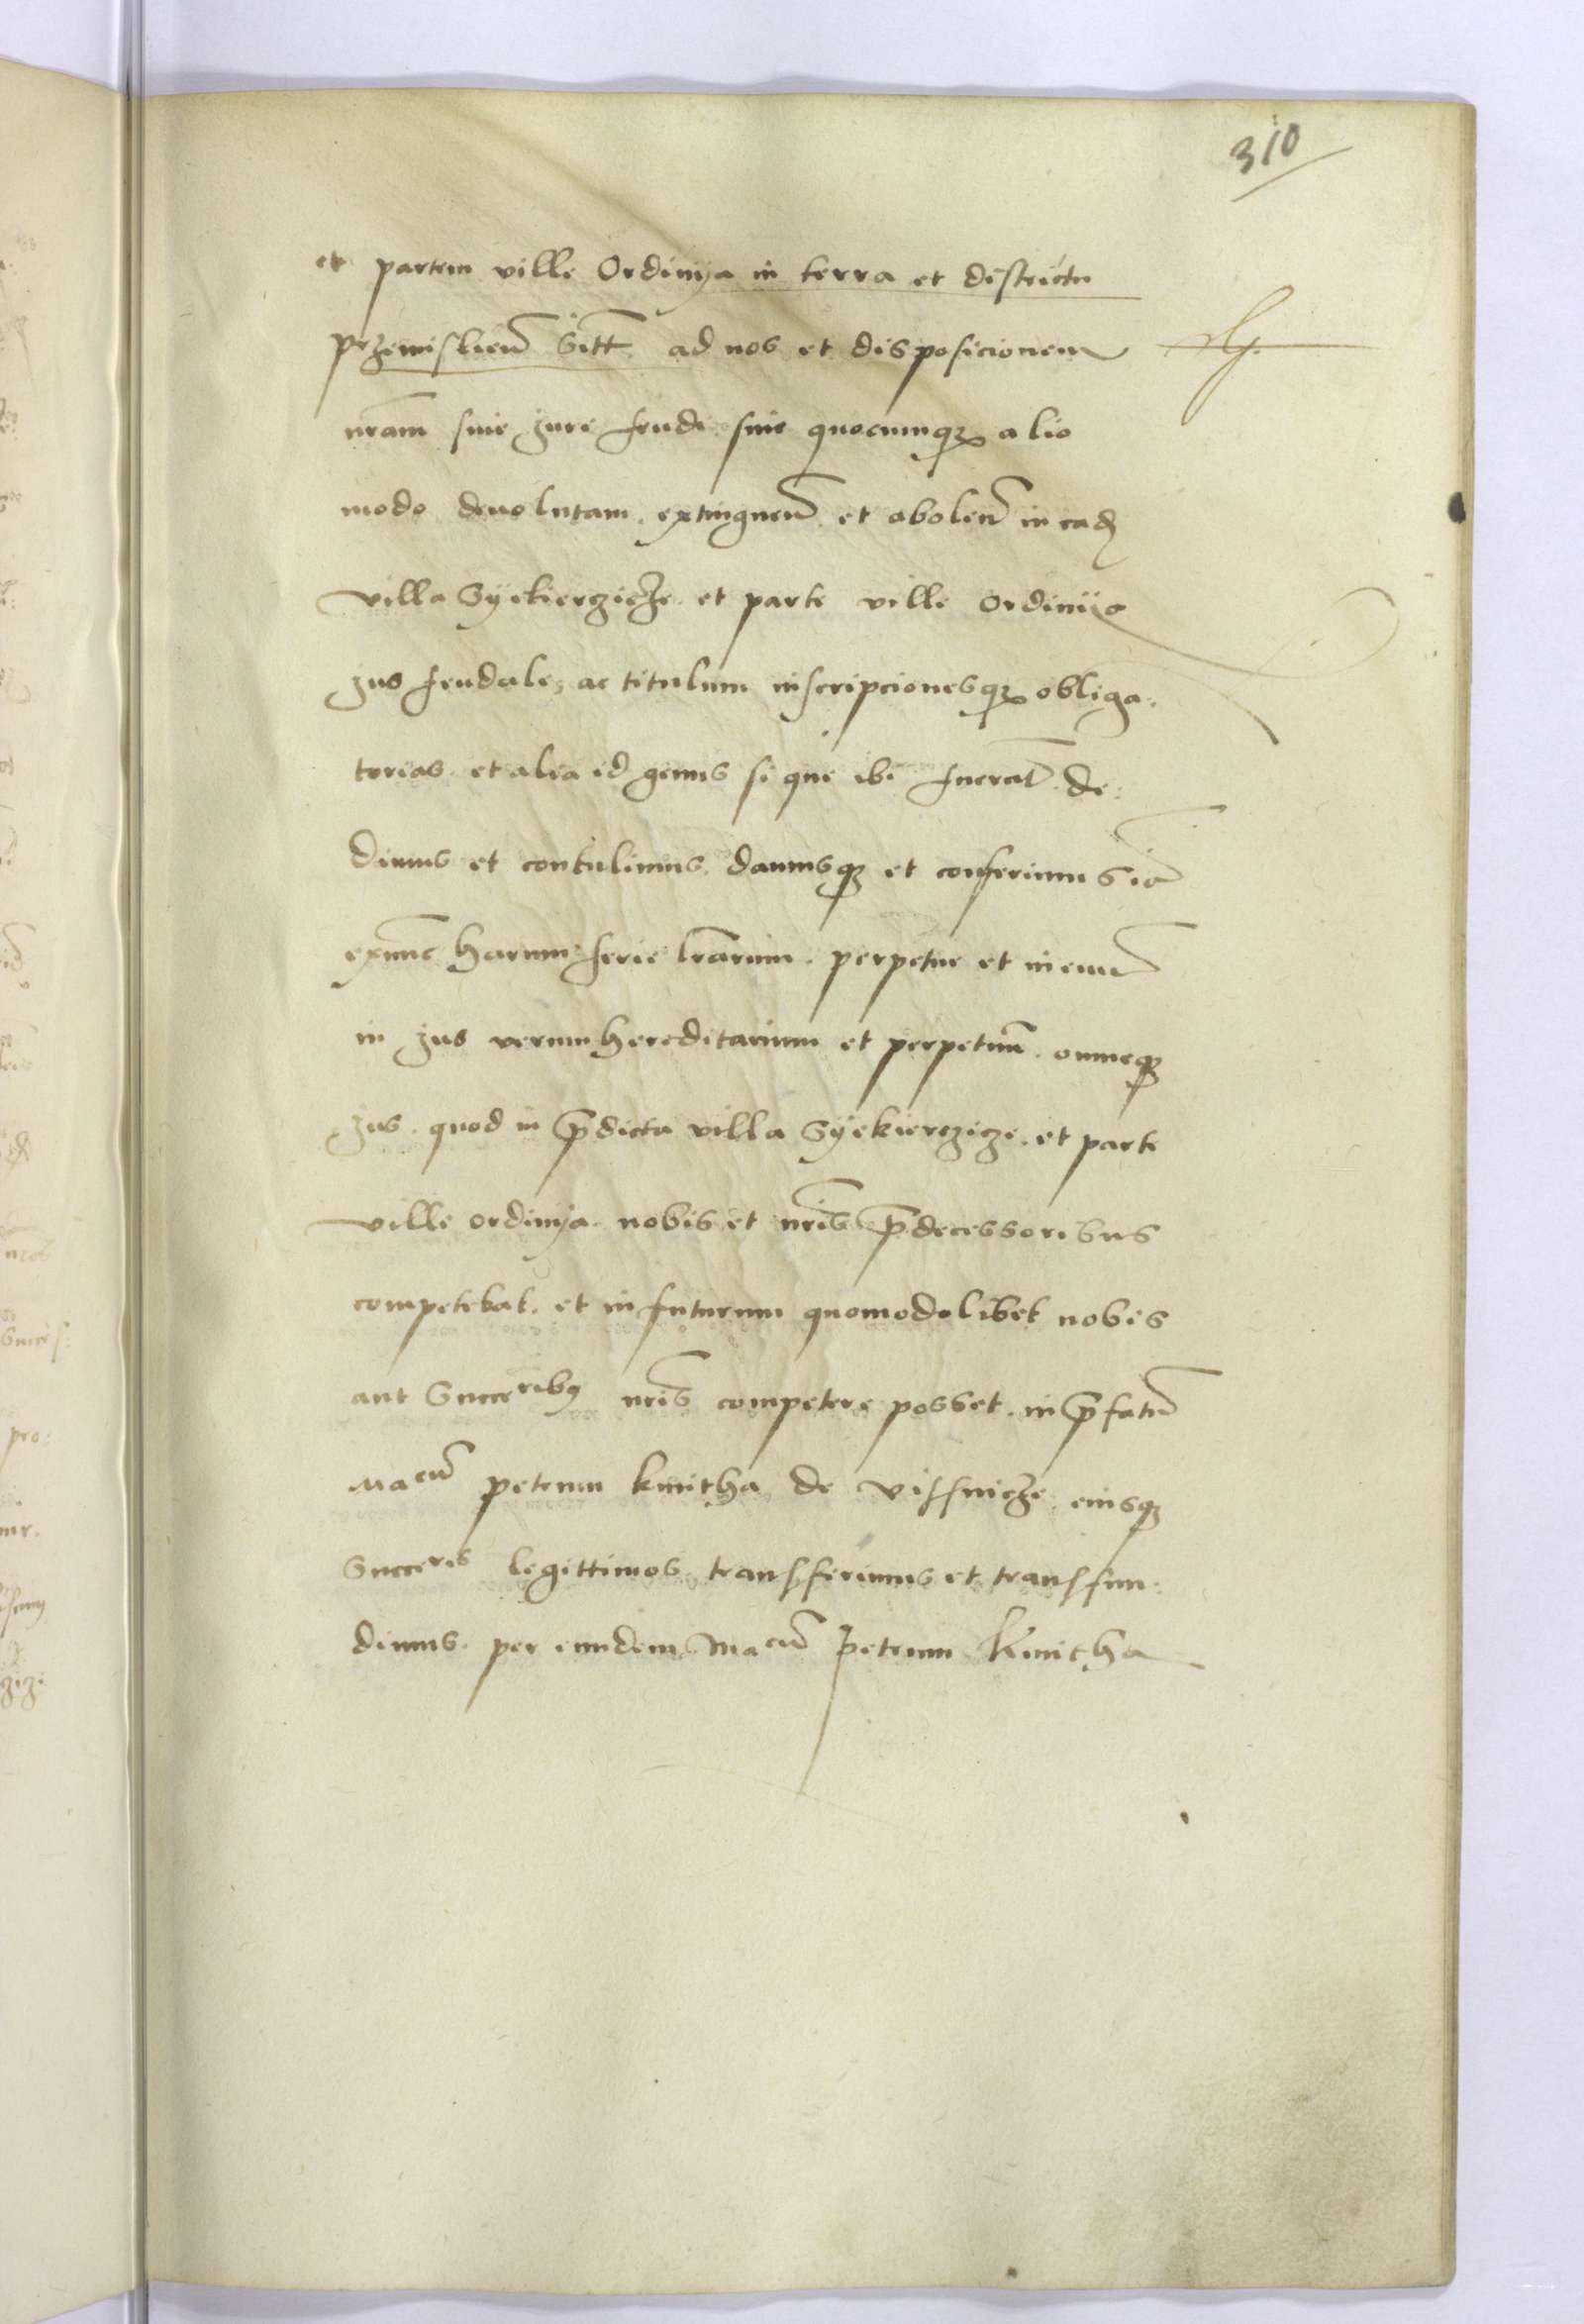 310
et partem ville Ordinija in terra et districtu
przemislien̄ Sitt̄. ad nos et disposicionem
nr̄am siue jure feudi siue quocumqꝫ alio
modo deuolutam. extinguen̄. et abolen̄ in ead̄
villa Syekierzicze. et parte ville Ordinija
jus feudale, ac titulum inscripcionesqꝫ obliga:
torias. et alia id genus si que ibi fuerāt. de:
dimus et contulimus. damusqꝫ et conferimus iā
exnunc harum serie lr̄arum. perpetue et in euū
in jus verum hereditarium et perpetuū. omneqꝫ
jus. quod in p̄dicta villa Syekierzicze. et parte
ville ordinija. nobis et nr̄is p̄decessoribus
competebat. et in futurum quomodolibet nobis
aut Succeribꝰ nr̄is competere posset. in p̄fatū
Macū petrum kmitha de vissnicze. eiusqꝫ
Succeres legittimos transferimus et transfun:
dimus. per eundem Macū petrum Kmitha